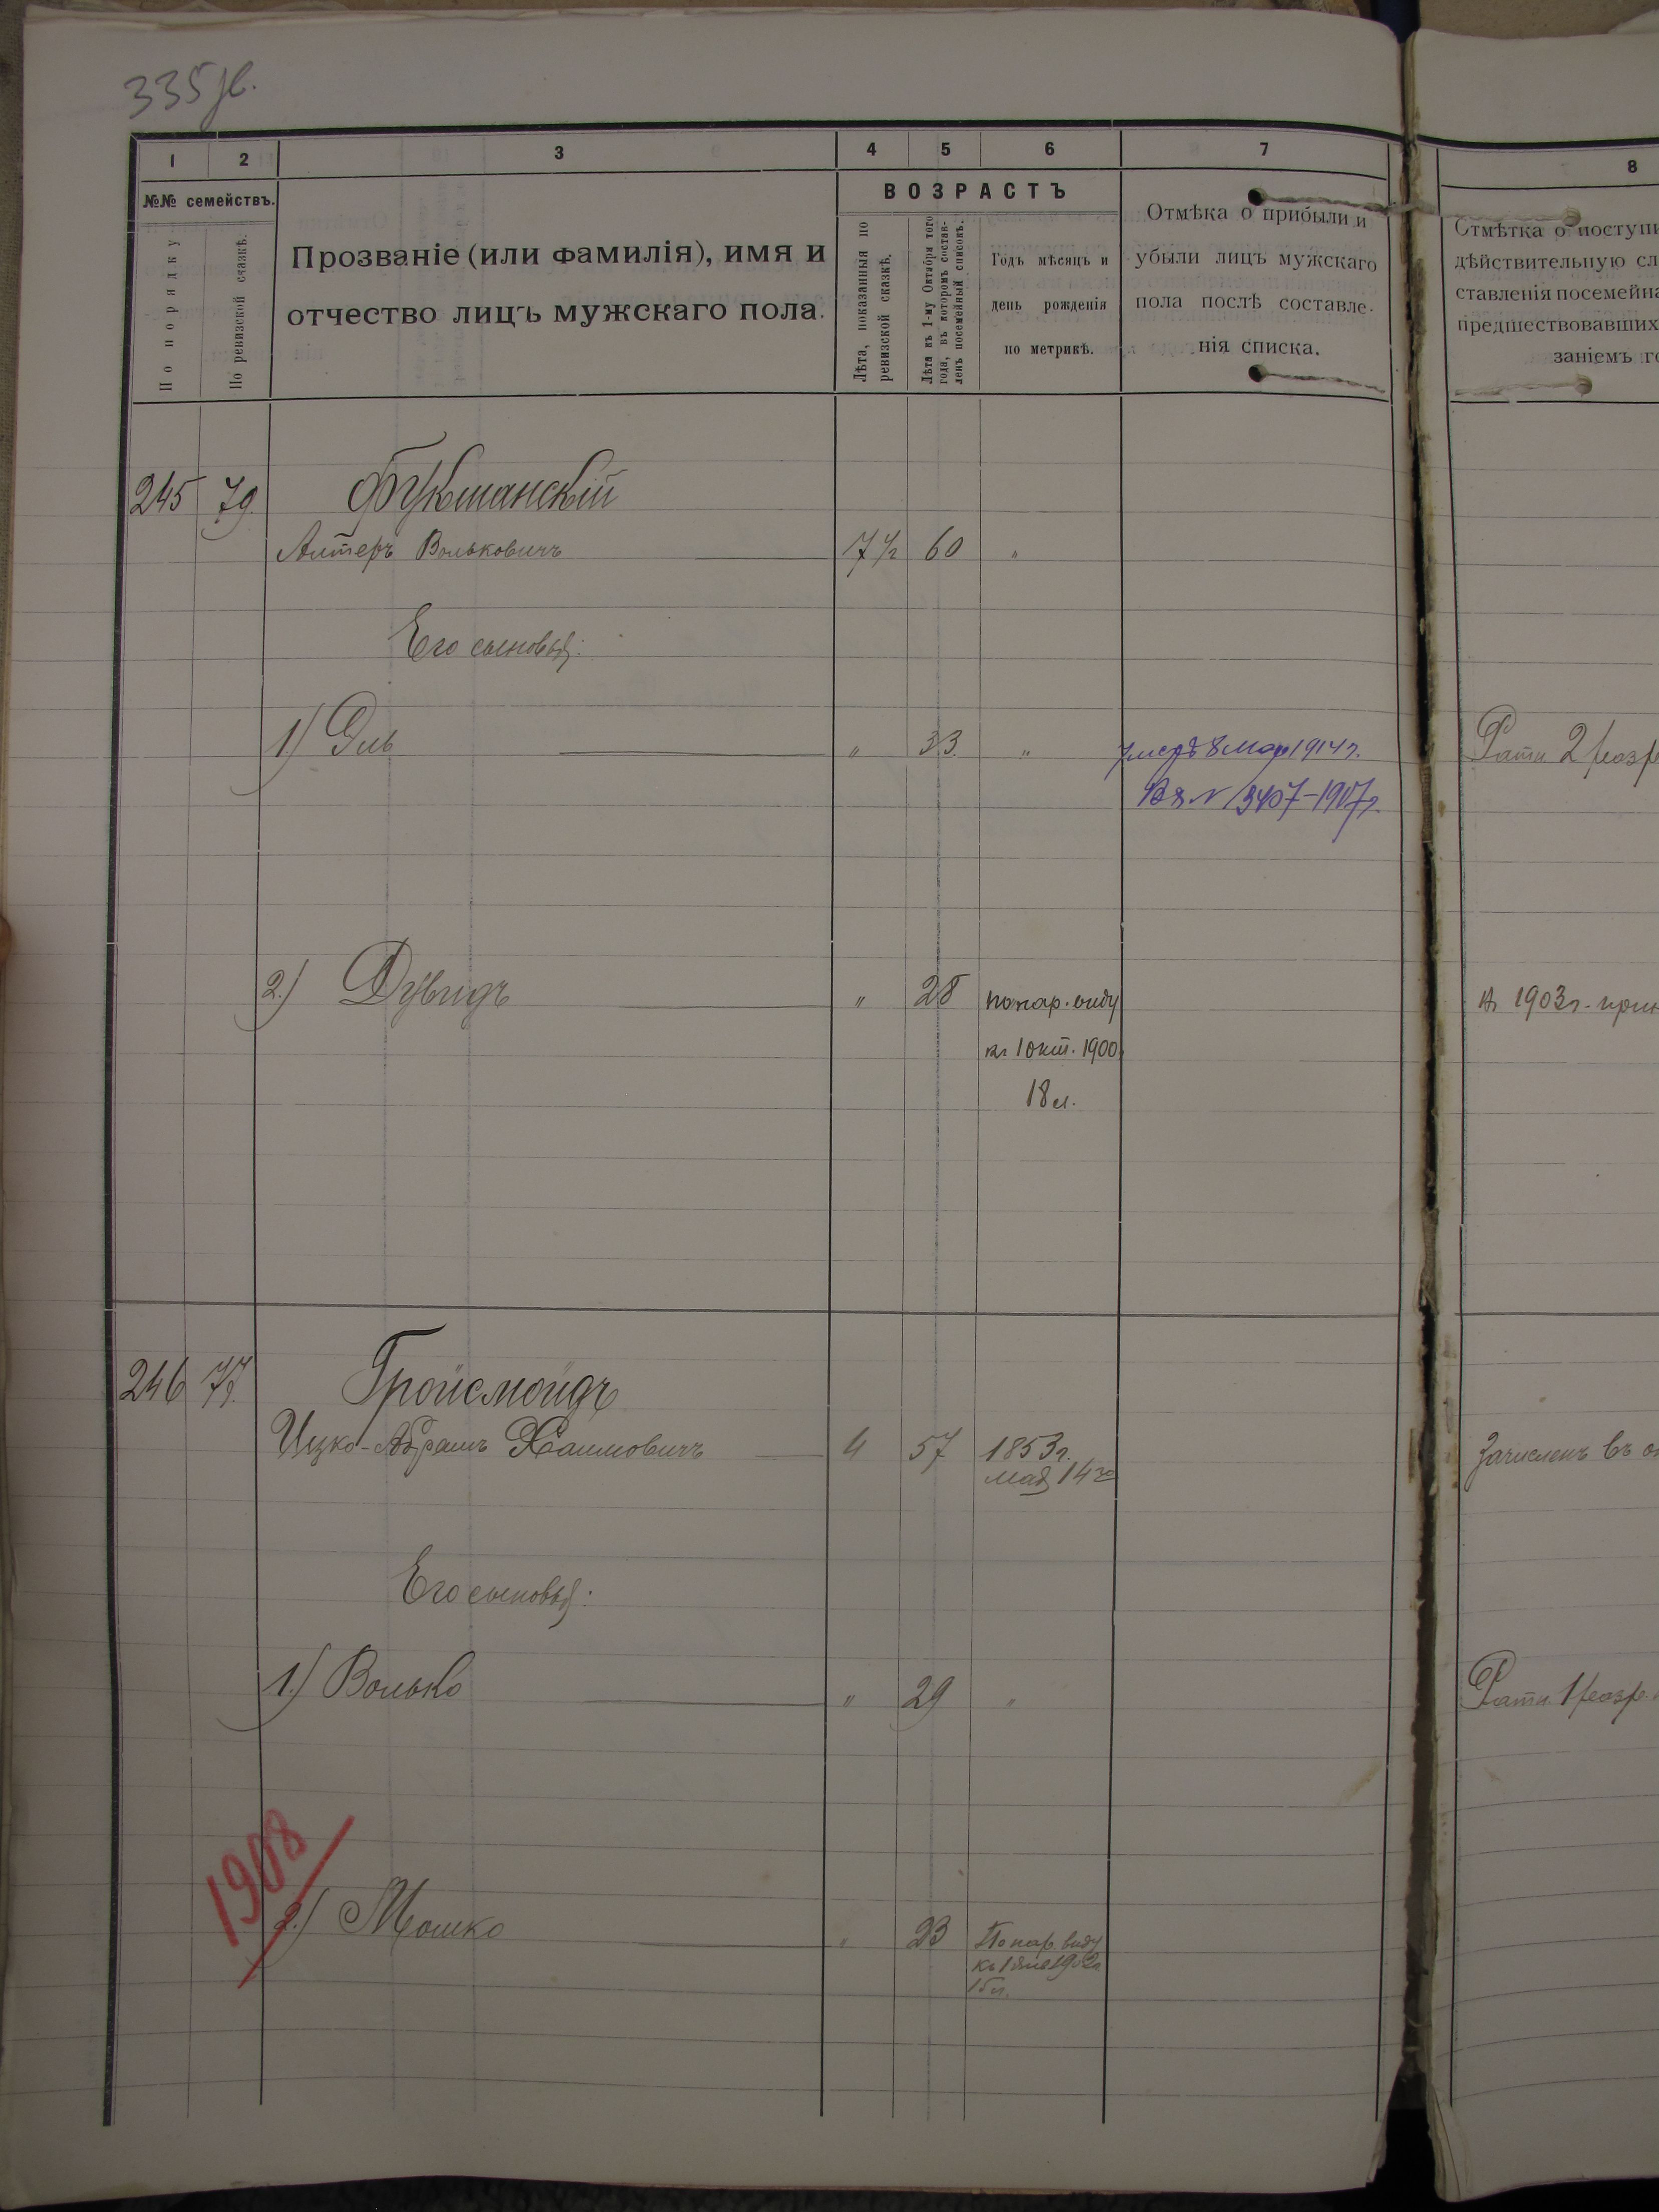 335
1 2 3 4 5 6 7 8
№№ семействъ.
По порядку
По ревизской сказкѣ.
Прозваніе (или фамилія), имя и
отчество лицъ мужскаго пола.
ВОЗРАСТЪ
Лѣта, показанныя по
ревизской сказкѣ.
Лѣта къ 1-му Октября того
года, въ которомъ состав-
ленъ посемейный списокъ.
Годъ мѣсяцъ и
день рожденія
по метрикѣ.
Отмѣка о прибыли и
убыли лицъ мужскаго
пола послѣ составле-
нія списка.
Отмѣтка о поступи
дѣйствительную сл
ставленія посемейна
предшествовавших
заніемъ го
245 79.
Алтеръ Вольковичъ 7 1/2 60 "
Его сыновья:
1) Эль " 33 " умеръ 8 Мар 1914 г. Рати. 2 разр
№ 3407-1907 г.
2.) Дувидъ " 28 по нар. виду 1903 г. при
къ 1 окт. 1900
18 л.
246 77.
Гройсмойдъ
Ицко-Абрамъ Хаимовичъ 4 57 1853 г. Зачисленъ въ
мая 14 го
Его сыновья:
1.) Волько " 29 " Рати. 1 разр.
1908
2.) Мошко " 23 По нар. виду
къ 1 1902 г.
15 л.